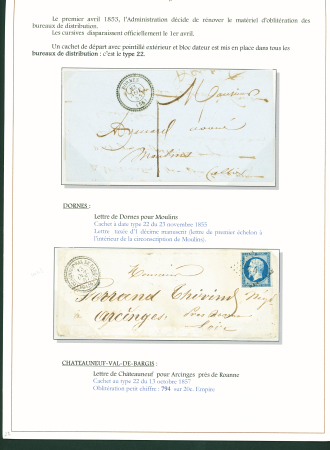 Le premier avril 1853, l'Administration décide de rénover le matériel d'oblitération des
bureaux de distribution.
Les cursives disparaissent officiellement le 1er avril.
Un cachet de départ avec pointillé extérieur et bloc dateur est mis en place dans tous les
bureaux de distribution : c'est le type 22.
DORNES
Monsieur
Moulins
DORNES :
Lettre de Dornes pour Moulins
Cachet à date type 22 du 23 novembre 1855
Lettre taxée d'1 décime manuscrit (lettre de premier échelon à
l'intérieur de la circonscription de Moulins).
Monsieur
Ferrand Thévind
arcinges
Loire
CHATEAUNEUF-VAL-DE-BARGIS :
Lettre de Châteauneuf pour Arcinges près de Roanne
Cachet au type 22 du 13 octobre 1857
Oblitération petit chiffre : 794 sur 20c. Empire